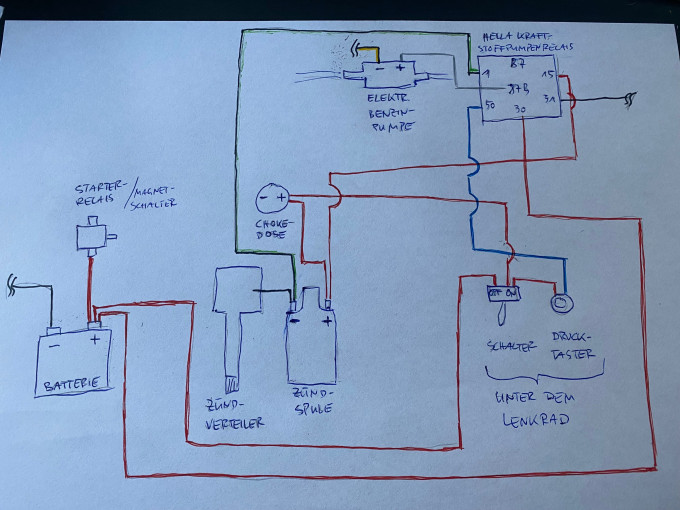 HELLA KRAFT-
STOFFPUMPENRELAIS
87
1
15
87b
50
31
30
- +
ELEKTR.
BENZIN-
PUMPE
STARTER-
RELAIS / MAGNET-
SCHALTER
- +
CHOKE-
DOSE
OFF ON
- +
- +
BATTERIE
SCHALTER
DRUCK-
TASTER
ZÜND-
VERTEILER
ZÜND-
SPULE
UNTER DEM
LENKRAD